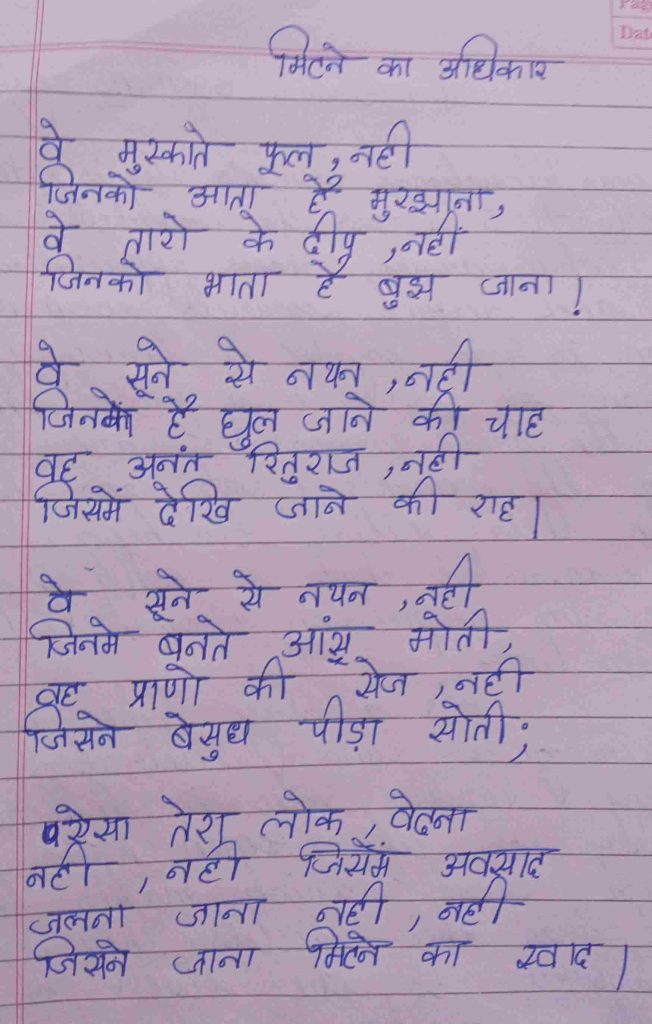 Page
Date
मिटने का अधिकार
वे मुस्काते फूल, नही
जिनको आता है मुरझाना,
वे तारो के दीप, नहीं
जिनको भाता है बुझ जाना!
वे सूने से नयन, नही
जिनको है घुल जाने की चाह
वह अनंत रितुराज, नही
जिसमें देखि जाने की राह।
वे सूने से नयन, नही
जिनमे बनते आंसू मोती,
वह प्राणो की सेज, नही
जिसने बेसुध पीड़ा सोती;
ऐसा तेरा लोक, वेदना
नही, नही जिसमें अवसाद
जलना जाना नही, नही
जिसने जाना मिटने का स्वाद।